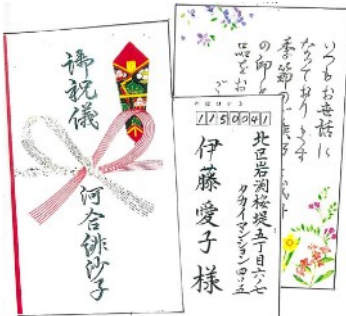 御祝儀
河合俳沙子
1150041
北区岩渕桜堤五丁目六ノ七
タカイマンション四ノ五
伊藤愛子様
いつもお世話に
なっております
季節の
の印
品をお